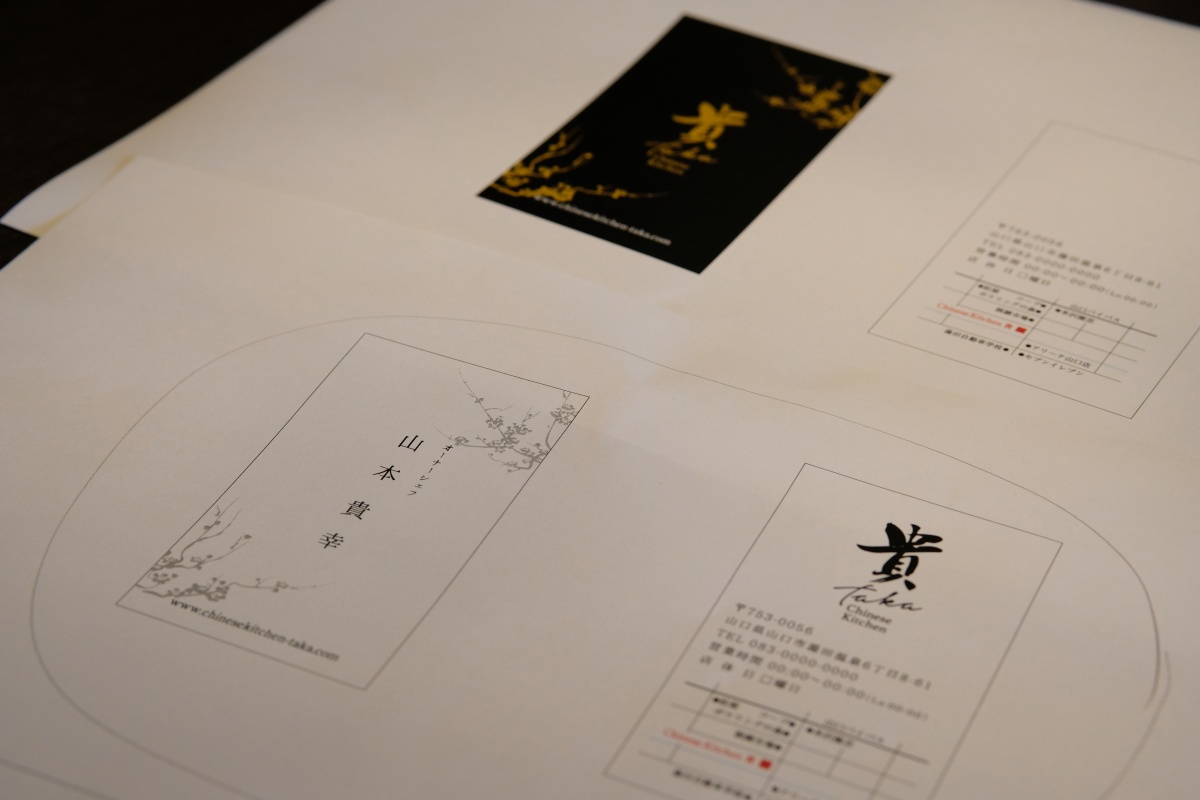 貴
Taka
Chinese
Kitchen
www.chinesekitchen-taka.com
〒753-0056
山口県山口市湯田温泉6丁目8-61
TEL 083-0000-0000
営業時間 00:00~00:00(Lo 00:00)
店 休 日 〇曜日
Chinese Kitchen 貴
●アリーナ山口店
●セブンイレブン
オーナーシェフ
山本貴幸
www.chinesekitchen-taka.com
貴
Taka
Chinese
Kitchen
〒753-0056
山口県山口市湯田温泉6丁目8-61
TEL 083-0000-0000
営業時間 00:00~00:00(Lo 00:00)
店 休 日 〇曜日
Chinese Kitchen 貴